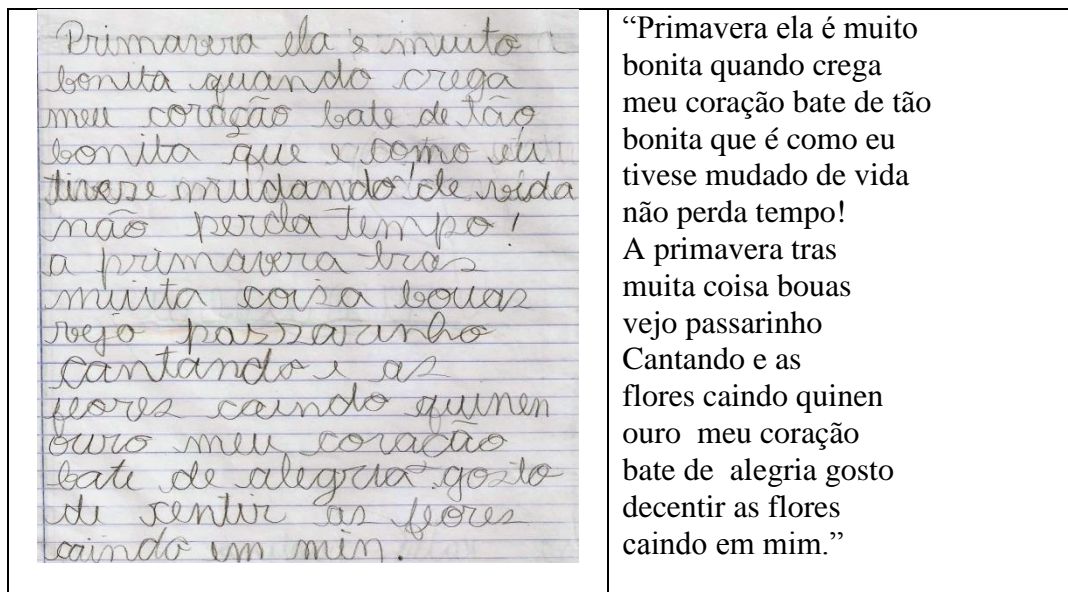 Primavera ela é muito
bonita quando crega
meu coração bate de tão
bonita que e como eu
tivese mudando de vida
não perda tempo!
a primavera tras
muita coisa bouas
vejo passarinho
cantando e as
flores caindo quinen
ouro meu coração
bate de alegria gosto
de sentir as flores
caindo em min.
“Primavera ela é muito
bonita quando crega
meu coração bate de tão
bonita que é como eu
tivese mudado de vida
não perda tempo!
A primavera tras
muita coisa bouas
vejo passarinho
Cantando e as
flores caindo quinen
ouro meu coração
bate de alegria gosto
decentir as flores
caindo em mim.”